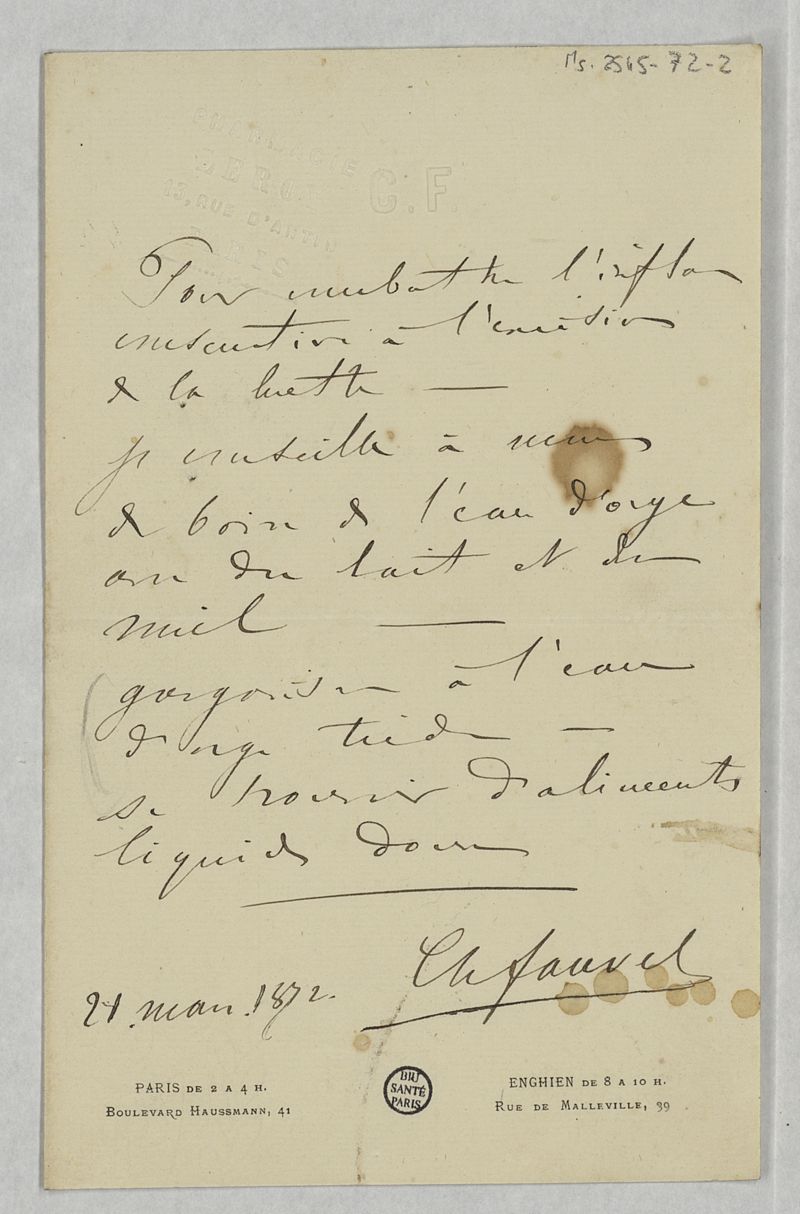 Ms. 2545-72-2
PHARMACIE
15, RUE D'ANTIN
PARIS
C.F.
Pour combattre l'inflam
consécutive à l'excision
de la luette —
je conseille à
de boire de l'eau d'orge
avec du lait et du
miel —
gargariser à l'eau
d'orge tiède —
se nourrir d'aliments
liquides doux
Ch fauvel
21 mars 1872.
PARIS DE 2 A 4 H.
BOULEVARD HAUSSMANN, 41
BIU
SANTÉ
PARIS
ENGHIEN DE 8 A 10 H.
RUE DE MALLEVILLE, 39